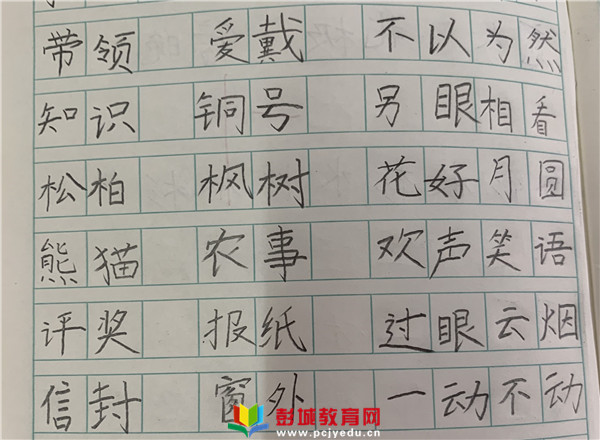 带领 爱戴 不以为然
知识 铜号 另眼相看
松柏 枫树 花好月圆
熊猫 农事 欢声笑语
评奖 报纸 过眼云烟
信封 窗外 一动不动
彭城教育网
www.pcjyedu.cn